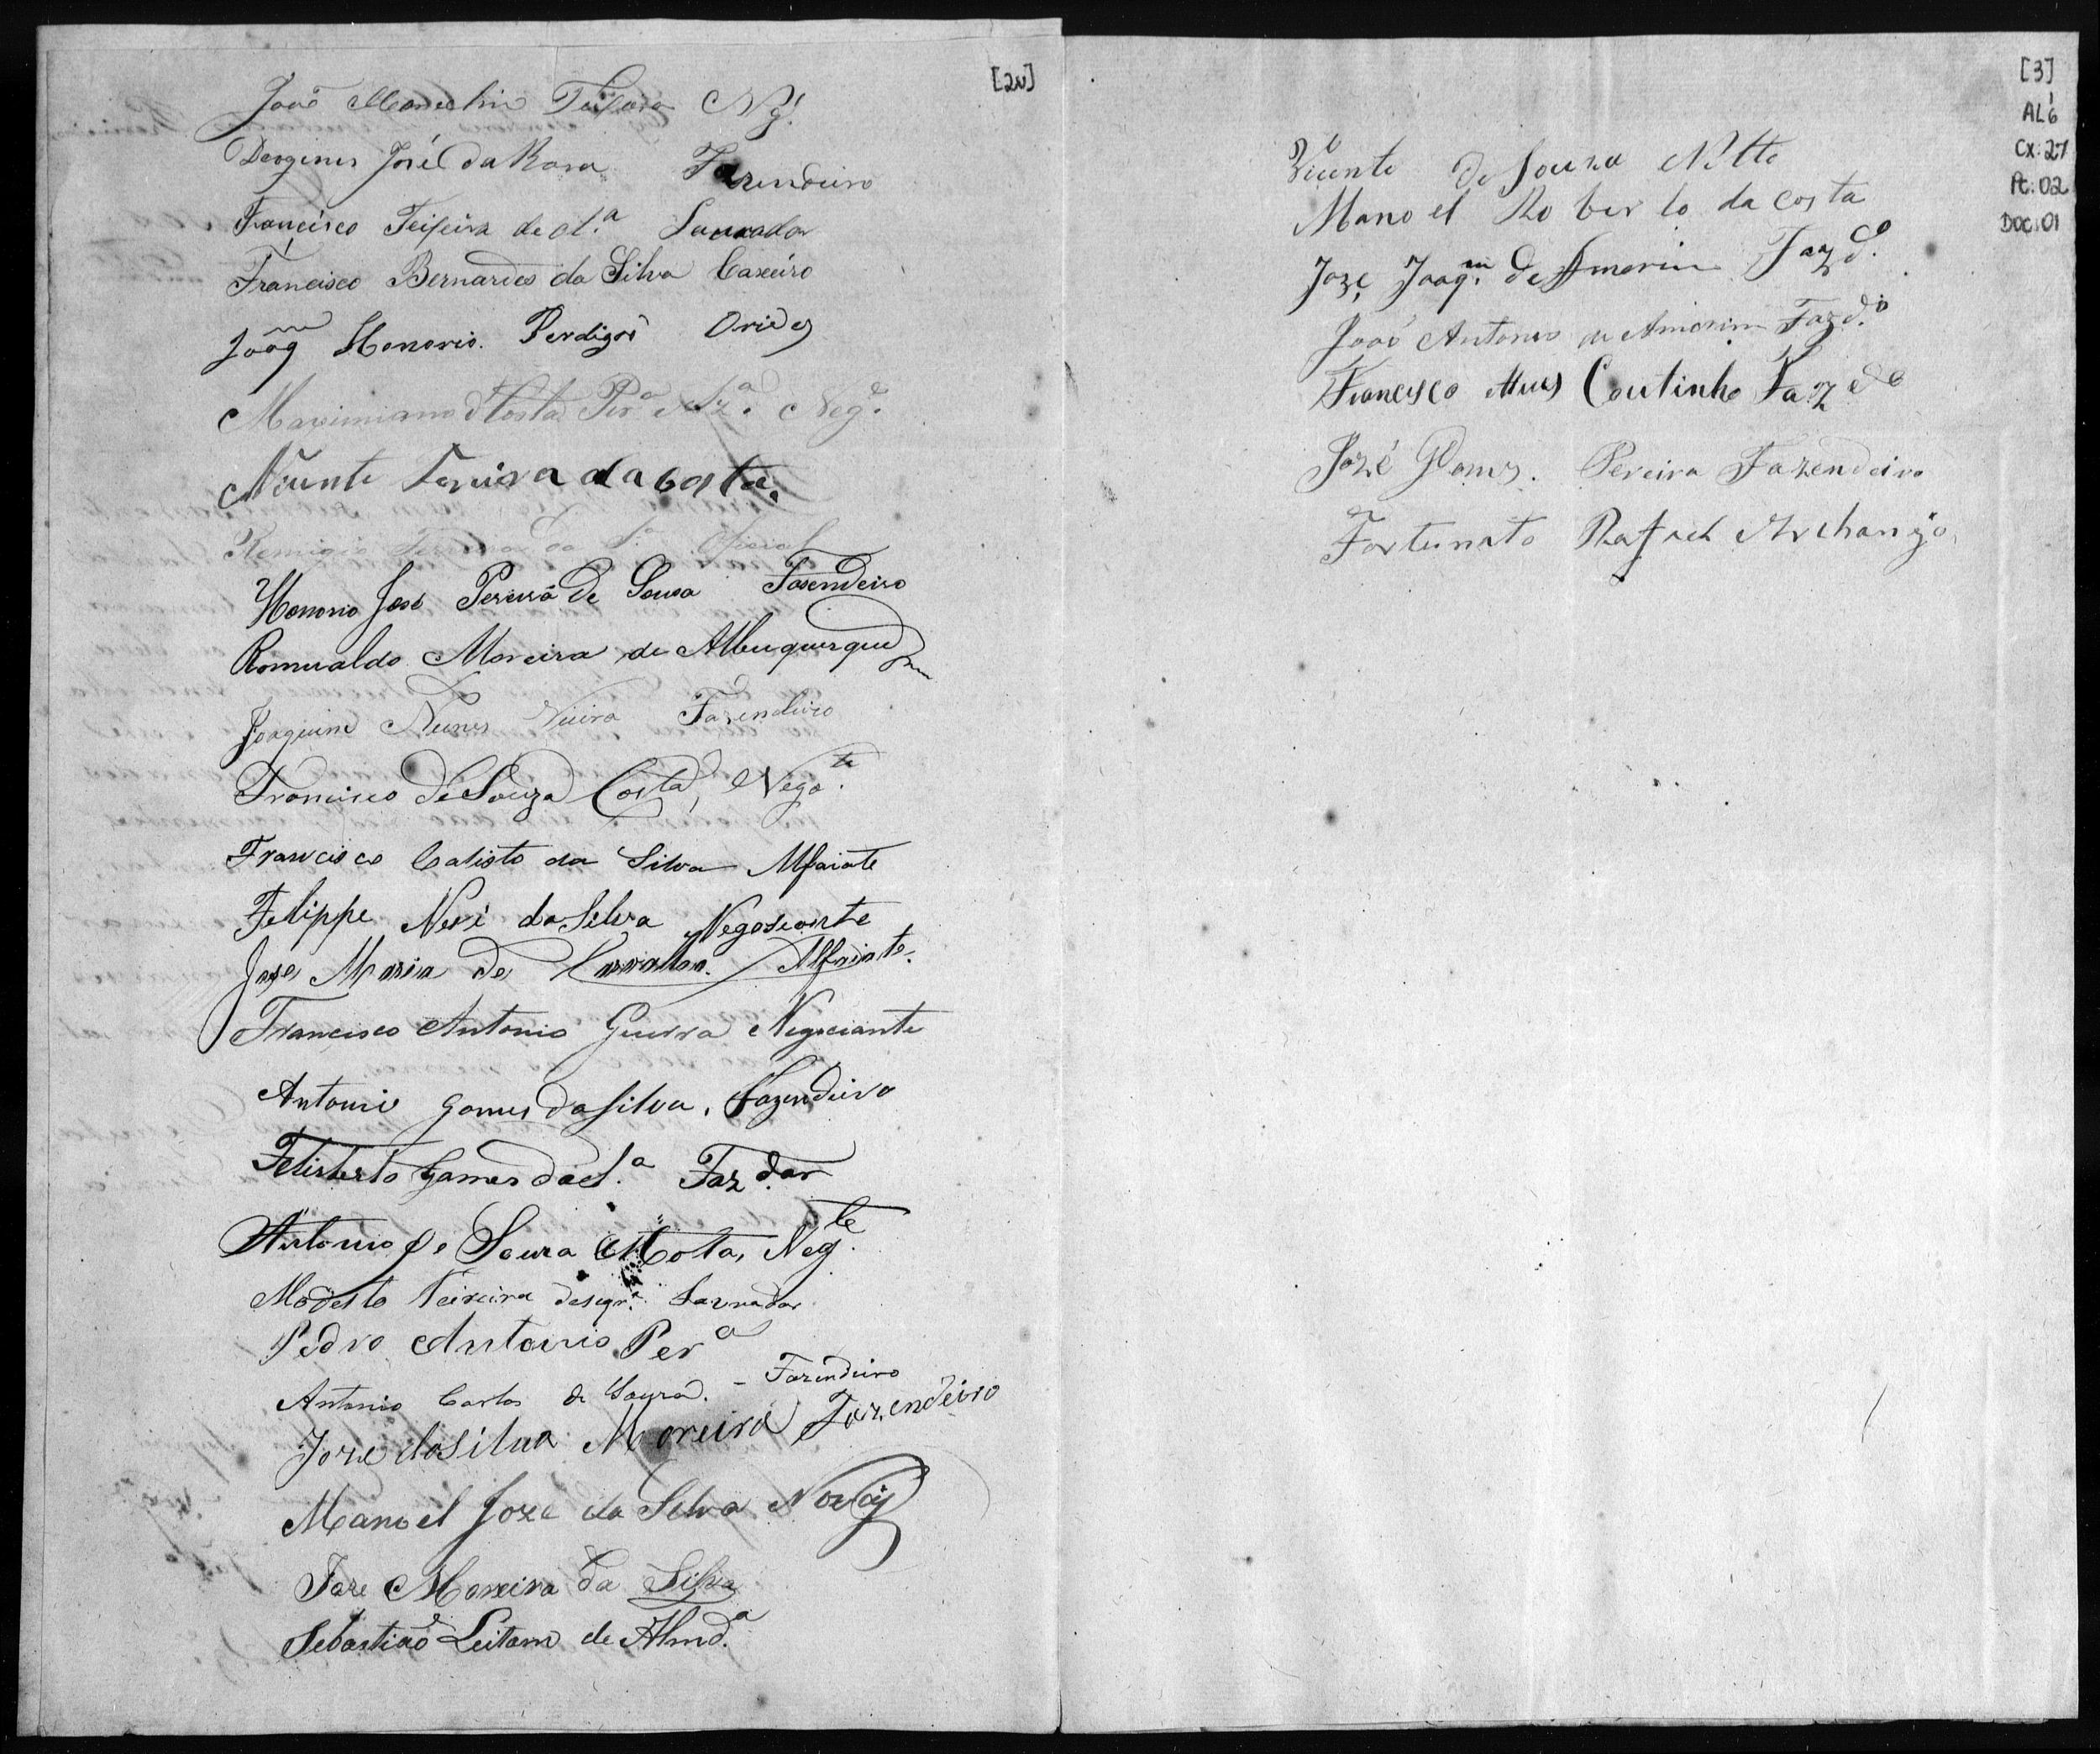 [2v]
João Teixeira Ng.
José da Rosa Fazendeiro
Francisco Teixeira de Lavrador
Francisco Bernardes da Silva Caxeiro
Joaqm Honorio Perdigão
Maximiano Costa Pra Neg.e
Vicente Pereira da Costa
Remigio da S.a Oficial
Honorio José Pereira de Sousa Fasendeiro
Romualdo Moreira de Albuquerque
Joaquim Nunes Vieira Fazendeiro
Francisco de Souza Costa, Nego.te
Francisco Calisto da Silva Alfaiate
Felippe Neri da Silva Negoseante
Jose Maria de Carvalho. Alfaiate.
Francisco Antonio Guerra Negociante
Antonio Gomes da Silva, Fazendeiro
Felisberto Gomes da S.a Faz.dor
Antonio de Souza Mota, Neg.te
Modesto Teixeira Lavrador
Pedro Antonio Per.a
Antonio Carlos de Souza. - Fazendeiro
Joze da Silva Moreira Fazendeiro
Manoel Joze da Silva Novais
Joze Moreira da Silva
Sebastião Leitam de Almd.a
[3]
AL1.6
CX: 27
Pt: 02
DOC: 01
Vicente de Souza Netto
Manoel Roberto da Costa
Joze Joaq.m de Amorim Fazd.o
João Antonio de Amorim Fazd.o
Francisco Coutinho Fazdo
José Gomes Pereira Fazendeiro
Fortunato Rafael Archanjo